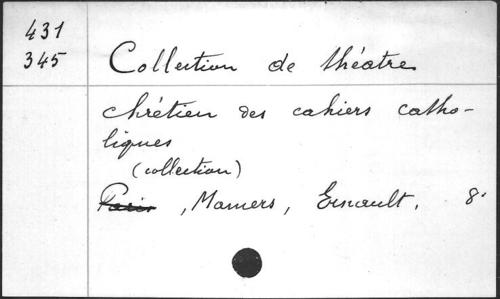 431
345
Collection de théatre
chrétien des cahiers catho-
liques
(collection)
Paris, Mamers, Ernault. 8°